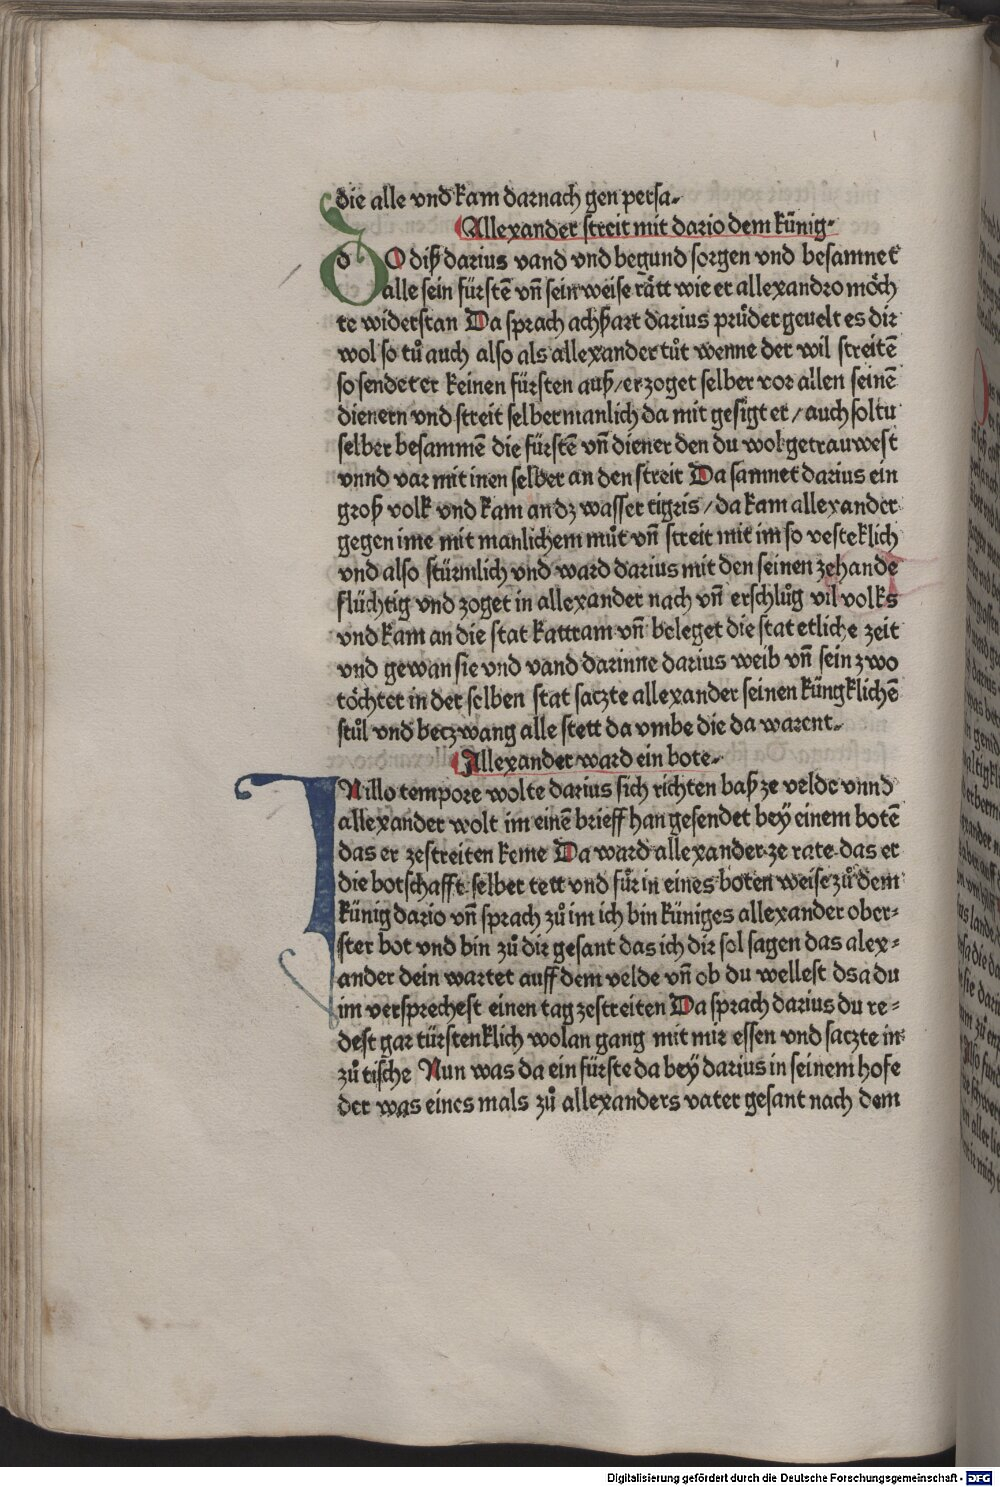 die alle vnd kam darnach gen persa.
Allexander streit mit dario dem künig.
dO diß darius vand vnd begund sorgen vnd besamnet
alle sein fürstē vñ sein weise rätt wie er allexandro möch
te widerstan Da sprach achßart darius průder geuelt es dir
wol so tů auch also als allexander tůt wenne der wil streitē
so sendet er keinen fürsten auß/er zoget selber vor allen seinē
dienern vnd streit selber manlich da mit gesigt er/auch soltu
selber besammē die fürstē vñ diener den du wol getrauwest
vnnd var mit inen selber an den streit Da samnet darius ein
groß volk vnd kam an dz wasser tigris/da kam allexander
gegen ime mit manlichem můt vñ streit mit im so vesteklich
vnd also stürmlich vnd ward darius mit den seinen zehande
flüchtig vnd zoget in allexander nach vñ erschlůg vil volks
vnd kam an die stat kattram vñ beleget die stat etliche zeit
vnd gewan sie vnd vand darinne darius weib vñ sein zwo
töchter in der selben stat saczte allexander seinen küngklichē
stůl vnd beczwang alle stett da vmbe die da warent.
Allexander ward ein bote.
INillo tempore wolte darius sich richten baß ze velde vnnd
allexander wolt im einē brieff han gesendet bey einem botē
das er zestreiten keme Da ward allexander ze rate das er
die botschafft selber tett vnd fůr in eines boten weise zů dem
künig dario vñ sprach zů im ich bin küniges allexander ober=
ster bot vnd bin zů dir gesant das ich dir sol sagen das alex=
ander dein wartet auff dem velde vñ ob du wellest dsa du
im versprechest einen tag zestreiten Da sprach darius du re=
dest gar türstenklich wolan gang mit mir essen vnd saczte in
zů tische Nun was da ein fürste da bey darius in seinem hofe
der was eines mals zů allexanders vater gesant nach dem
Digitalisierung gefördert durch die Deutsche Forschungsgemeinschaft - DFG